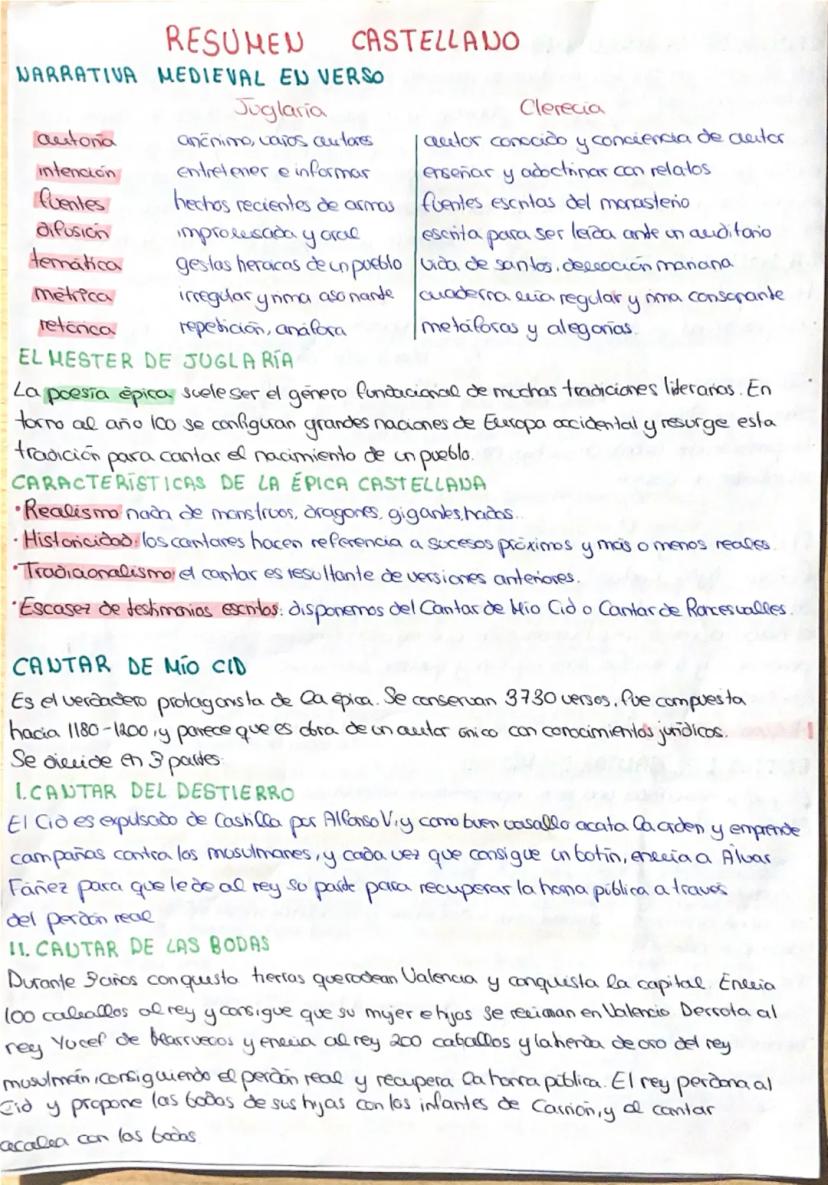 RESUMEN CASTELLANO
NARRATIVA MEDIEVAL EN VERSO
Juglaría Clerecía
autoría anónimo, varios autores autor conocido y conciencia de autor
intención entretener e informar enseñar y adoctrinar con relatos
fuentes hechos recientes de armas fuentes escritas del monasterio
difusión improvisada y oral escrita para ser leída ante un auditorio
temática gestas heroicas de un pueblo vida de santos, devoción mariana
métrica irregular y rima asonante cuaderna vía regular y rima consonante
retórica repetición, anáfora metáforas y alegorías
EL MESTER DE JUGLARÍA
La poesía épica suele ser el género fundacional de muchas tradiciones literarias. En
torno al año 100 se configuran grandes naciones de Europa occidental y resurge esta
tradición para cantar el nacimiento de un pueblo.
CARACTERÍSTICAS DE LA ÉPICA CASTELLANA
·Realismo nada de monstruos, dragones, gigantes, hados...
·Historicidad: los cantares hacen referencia a sucesos próximos y más o menos reales.
·Tradicionalismo: el cantar es resultante de versiones anteriores.
·Escasez de testimonios escritos: disponemos del Cantar de Mio Cid o Cantar de Roncesvalles.
CANTAR DE MÍO CID
Es el verdadero protagonista de la épica. Se conservan 3730 versos, fue compuesta
hacia 1180-1200, y parece que es obra de un autor único con conocimientos jurídicos.
Se divide en 3 partes:
I.CANTAR DEL DESTIERRO
El Cid es expulsado de Castilla por Alfonso VI, y como buen vasallo acata la orden y emprende
campañas contra los musulmanes, y cada vez que consigue un botín, envía a Álvar
Fáñez para que le de al rey su parte para recuperar la honra pública a través
del perdón real
II. CANTAR DE LAS BODAS
Durante 3 años conquista tierras que rodean Valencia y conquista la capital. Envia
100 caballos al rey y consigue que su mujer e hijas se reúnan en Valencia. Derrota al
rey Yucef de Marruecos y envía al rey 200 caballos y la tienda de oro del rey
musulmán, consiguiendo el perdón real y recupera la honra pública. El rey perdona al
Cid y propone las bodas de sus hijas con los infantes de Carrión, y el cantar
acaba con las bodas